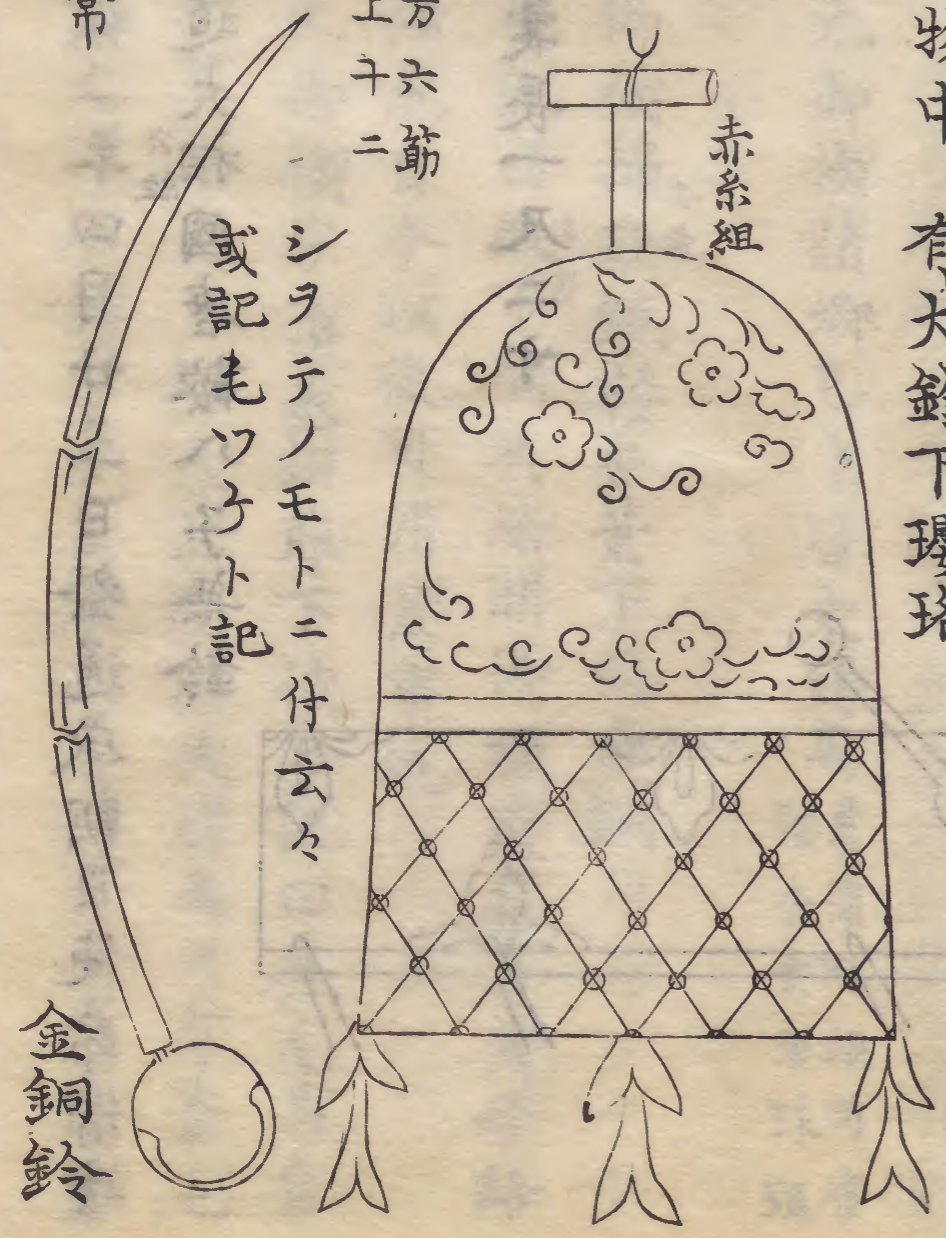 物中 有大鈴下瓔珞
赤糸組
方六筋
上千二
シヲテノモトニ付云々
或記毛ツケト記
常
金銅鈴